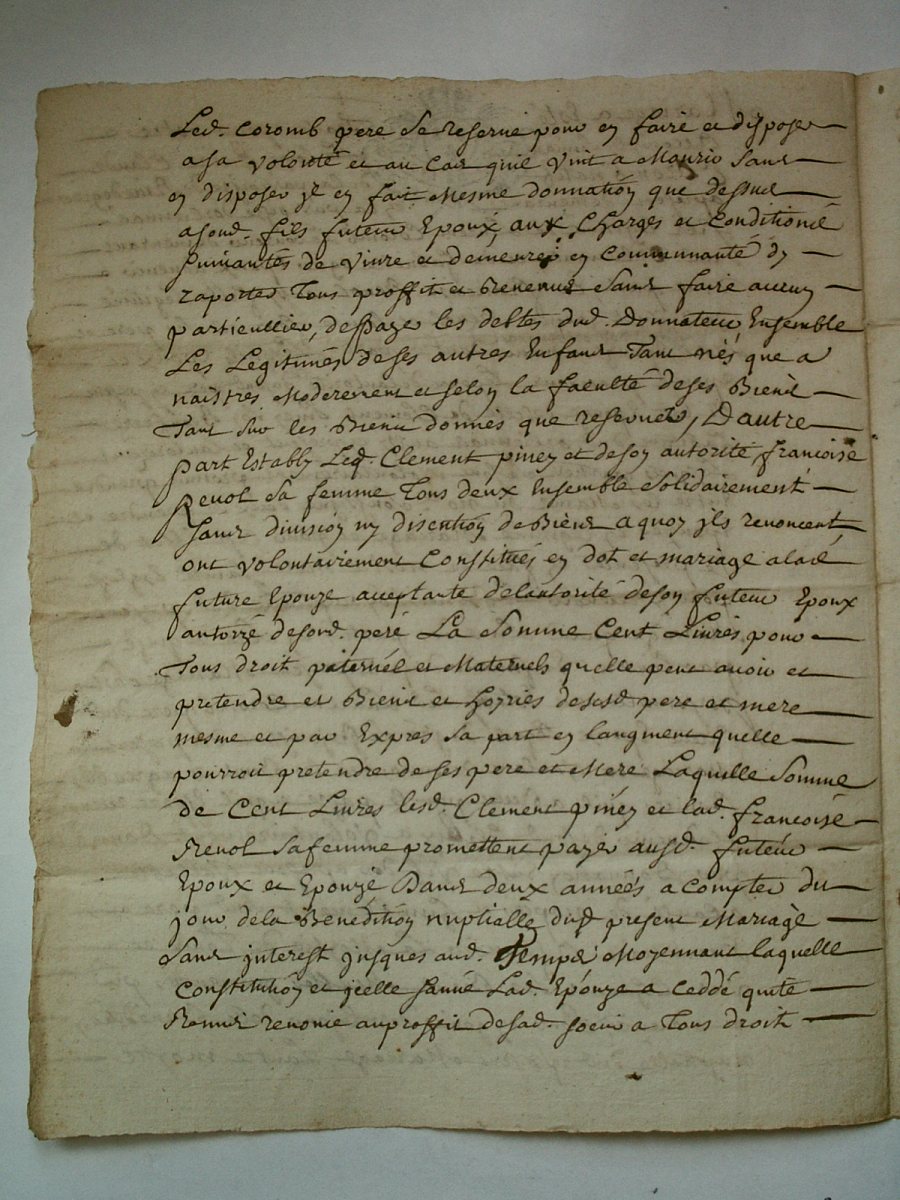 Led. Coromb pere se reserve pour en faire et disposer
a sa volonté et au cas quil vint a Mourir sans
en disposer jl en fait Mesme donnation que dessus
a sond. fils futeur Epoux, aux Charges et Conditions
suivantes de vivre et demeurer en Communauté dy
raporter Tous proffit et Revenus Sans faire aucun
particullier, de payer les debtes dud. Donnateur Ensemble
Les Legitimes de ses autres Enfans Tant nés que a
naistres Moderement et selon la faculté de ses Biens
Tant sur les Biens donnés que reservés, D'autre
part Estably Led. Clement piney et de son autorité françoise
Revol sa femme Tous deux Ensemble Solidairement
sans division ny discution de Biens a quoy jls renoncent
ont volontairement Constitués en dot et mariage a lad.
future Epouze acceptante de lautorité de son futeur Epoux
autorizé de sond. pere La Somme Cent Livres pour
Tous droit paternel et Maternels quelle peut avoir et
pretendre et Biens et hoyries de sesd. pere et mere
mesme et par Exprès sa part en laugment quelle
pourroit pretendre de ses pere et Mere Laquelle Somme
de Cent Livres lesd. Clement piney et lad. françoise
Revol sa femme promettent payer ausd. futeur
Epoux et Epouze Dans deux années a compter du
jour de la Benediction nuptialle dud. present Mariage
Sans interest jusques aud. Temps Moyennant laquelle
Constitution et jcelle Lad. Epouze a Ceddé quité
Remis renonié au proffit de sad. soeur a Tous droit